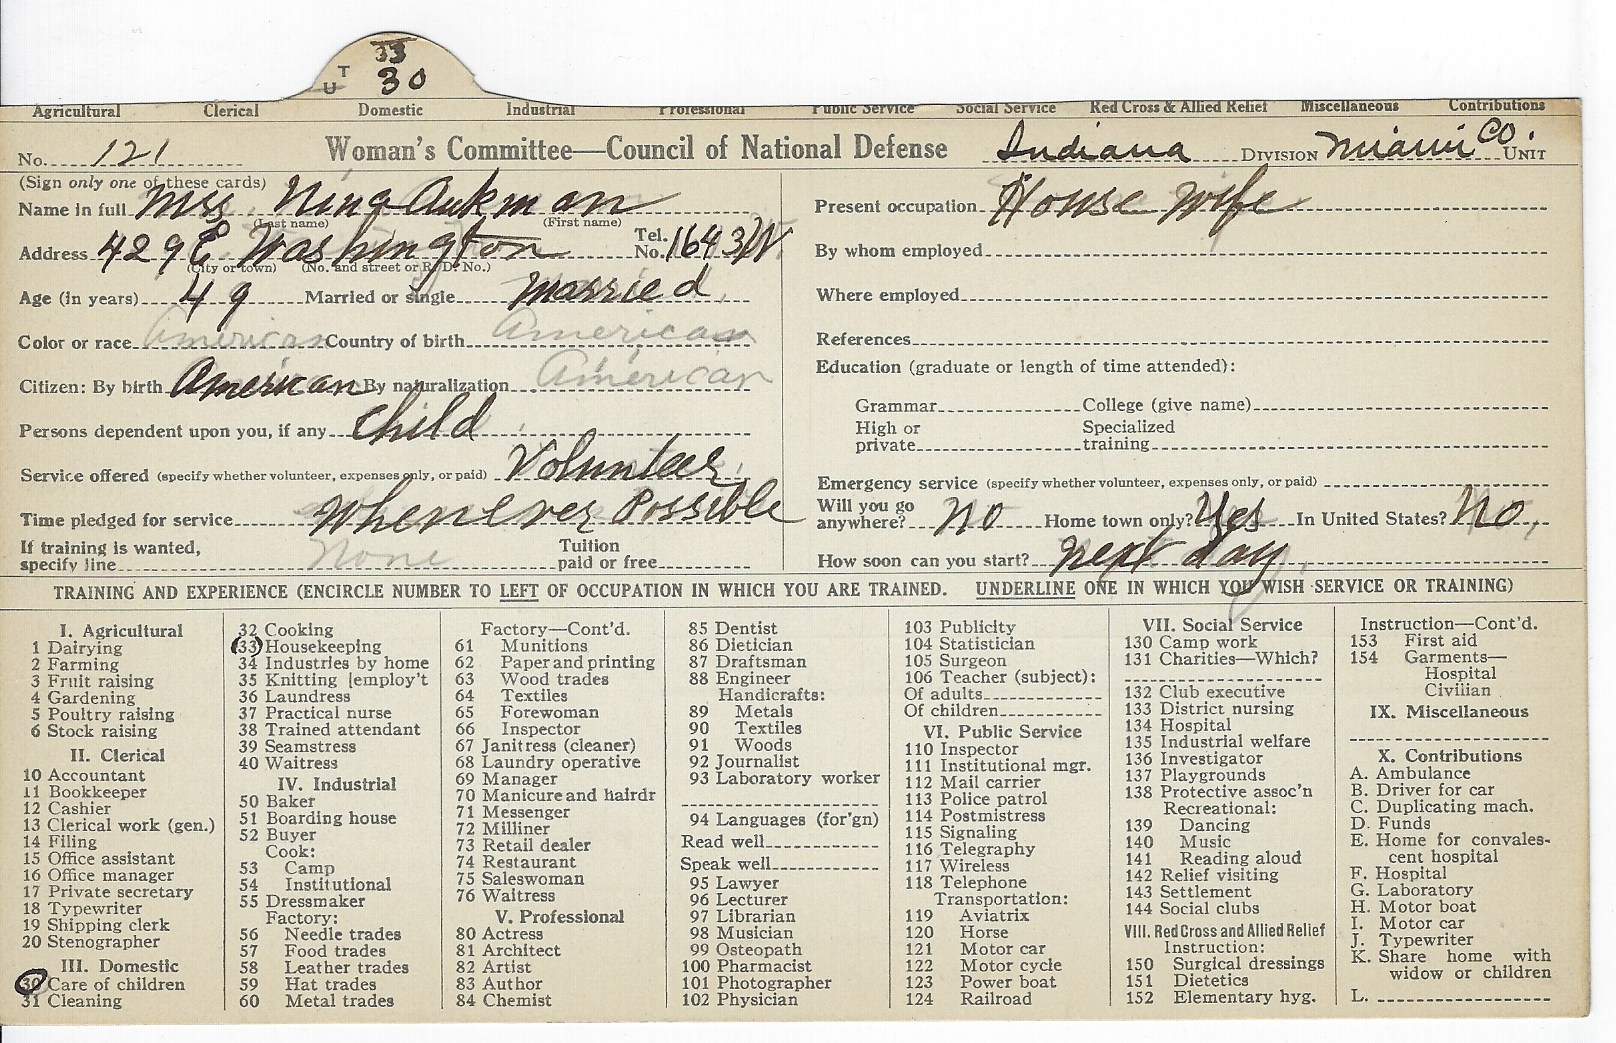 33
UT 30
Agricultural Clerical Domestic Industrial Professional Public Service Social Service Red Cross & Allied Relief Miscellaneous Contributions
No. 121 Woman's Committee—Council of National Defense Indiana DIVISION Miami Co. UNIT
(Sign only one of these cards)
Name in full Mrs. Nina Aukman
(Last name) (First name)
Address 429 E. Washington Tel. No. 1643W.
(City or town) (No. and street or R. D. No.)
Age (in years) 49 Married or single Married
Color or race American Country of birth American
Citizen: By birth American By naturalization American
Persons dependent upon you, if any Child
Service offered (specify whether volunteer, expenses only, or paid) Volunteer
Time pledged for service Whenever Possible
If training is wanted, specify line None Tuition paid or free
Present occupation House wife
By whom employed
Where employed
References
Education (graduate or length of time attended):
Grammar College (give name)
High or private Specialized training
Emergency service (specify whether volunteer, expenses only, or paid)
Will you go anywhere? No Home town only? Yes In United States? No,
How soon can you start? next day
TRAINING AND EXPERIENCE (ENCIRCLE NUMBER TO LEFT OF OCCUPATION IN WHICH YOU ARE TRAINED. UNDERLINE ONE IN WHICH YOU WISH SERVICE OR TRAINING)
I. Agricultural
1 Dairying
2 Farming
3 Fruit raising
4 Gardening
5 Poultry raising
6 Stock raising
II. Clerical
10 Accountant
11 Bookkeeper
12 Cashier
13 Clerical work (gen.)
14 Filing
15 Office assistant
16 Office manager
17 Private secretary
18 Typewriter
19 Shipping clerk
20 Stenographer
III. Domestic
30 Care of children
31 Cleaning
32 Cooking
(33) Housekeeping
34 Industries by home
35 Knitting [employ't
36 Laundress
37 Practical nurse
38 Trained attendant
39 Seamstress
40 Waitress
IV. Industrial
50 Baker
51 Boarding house
52 Buyer
Cook:
53 Camp
54 Institutional
55 Dressmaker
Factory:
56 Needle trades
57 Food trades
58 Leather trades
59 Hat trades
60 Metal trades
Factory—Cont'd.
61 Munitions
62 Paper and printing
63 Wood trades
64 Textiles
65 Forewoman
66 Inspector
67 Janitress (cleaner)
68 Laundry operative
69 Manager
70 Manicure and hairdr
71 Messenger
72 Milliner
73 Retail dealer
74 Restaurant
75 Saleswoman
76 Waitress
V. Professional
80 Actress
81 Architect
82 Artist
83 Author
84 Chemist
85 Dentist
86 Dietician
87 Draftsman
88 Engineer
Handicrafts:
89 Metals
90 Textiles
91 Woods
92 Journalist
93 Laboratory worker
94 Languages (for'gn)
Read well
Speak well
95 Lawyer
96 Lecturer
97 Librarian
98 Musician
99 Osteopath
100 Pharmacist
101 Photographer
102 Physician
103 Publicity
104 Statistician
105 Surgeon
106 Teacher (subject):
Of adults
Of children
VI. Public Service
110 Inspector
111 Institutional mgr.
112 Mail carrier
113 Police patrol
114 Postmistress
115 Signaling
116 Telegraphy
117 Wireless
118 Telephone
Transportation:
119 Aviatrix
120 Horse
121 Motor car
122 Motor cycle
123 Power boat
124 Railroad
VII. Social Service
130 Camp work
131 Charities—Which?
132 Club executive
133 District nursing
134 Hospital
135 Industrial welfare
136 Investigator
137 Playgrounds
138 Protective assoc'n
Recreational:
139 Dancing
140 Music
141 Reading aloud
142 Relief visiting
143 Settlement
144 Social clubs
VIII. Red Cross and Allied Relief
Instruction:
150 Surgical dressings
151 Dietetics
152 Elementary hyg.
Instruction—Cont'd.
153 First aid
154 Garments—
Hospital
Civilian
IX. Miscellaneous
X. Contributions
A. Ambulance
B. Driver for car
C. Duplicating mach.
D. Funds
E. Home for convales-
cent hospital
F. Hospital
G. Laboratory
H. Motor boat
I. Motor car
J. Typewriter
K. Share home with
widow or children
L.